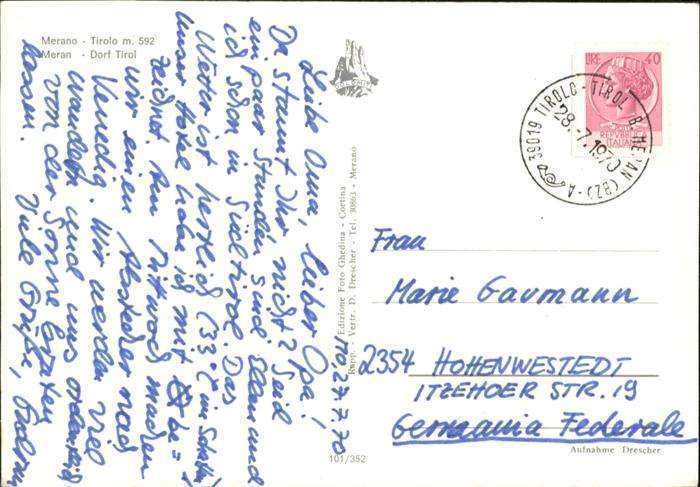 Merano - Tirolo m. 592
Meran - Dorf Tirol
MO, 27.7.70
Liebe Oma, lieber Opa!
Da staunt Ihr nicht? Seid
ein paar Stunden sind Klaus und
ich schon in Südtirol. Das
Wetter ist herrlich (33°C im Schatten)
unser Hotel habe ich mit be=
zeichnet. Am Mittwoch machen
wir einen Abstecher nach
Venedig. Wir werden viel
wandern und uns ordentlich
von der Sonne braten
lassen.
Viele Grüße,
Edizione Foto Ghedina - Cortina
Rapp. - Vertr. D. Drescher - Tel. 30863 - Merano
101/352
LIRE 40
REPUBBLICA
ITALIANA
39019 TIROLO - TIROL B. MERAN (BZ) - A
28.7.1970
Frau
Marie Gaumann
2354 HOHENWESTEDT
ITZEHOER STR. 19
Germania Federale
Aufnahme Drescher